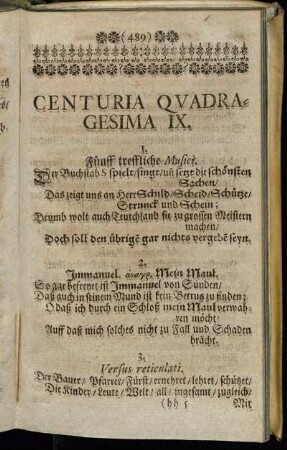 (489)
CENTURIA QVADRA-
GESIMA IX.
1.
Fünff treffliche Musici.
Der Buchstab S spielt/singt/uñ setzt die schönsten
Sachen/
Das zeigt uns an Herr Schild/Scheid/Schütze/
Strunck und Schein;
Drumb wolt auch Teutchland sie zu grossen Meistern
machen/
Doch soll den übrigẽ gar nichts vergebẽ seyn.
2.
Immanuel. ἀναγρ. Mein Maul.
So gar befreyet ist Immanuel von Sünden/
Daß auch in seinem Mund ist kein Betrug zu finden;
O daß ich durch ein Schloß mein Maul verwah-
ren möcht/
Auff daß mich solches nicht zu Fall und Schaden
brächt.
3.
Versus reticulati.
Der Bauer/Pfarrer/Fürst/ernehret/lehret/schützet/
Die Kinder/Leute/Welt/all/ingesamt/zugleich/
(hh 5
Mit